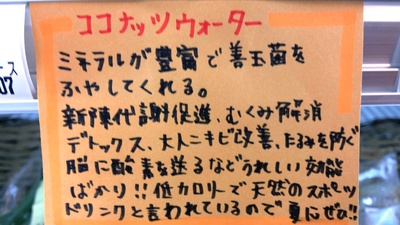 ース
07
ココナッツウォーター
ミネラルが豊富で善玉菌を
ふやしてくれる。
新陳代謝促進、むくみ解消
デトックス、大人ニキビ改善、たるみを防ぐ
脳に酸素を送るなどうれしい効能
ばかり!!低カロリーで天然のスポーツ
ドリンクと言われているので夏にぜひ!!